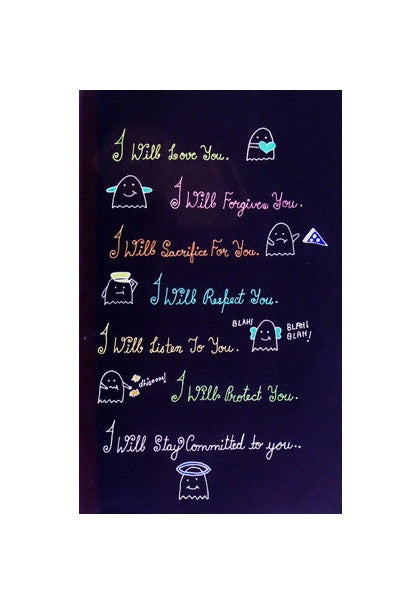 I Will Love You.
I Will Forgive You.
I Will Sacrifice For You.
I Will Respect You.
BLAH!
BLAH!
BLAH!
I Will Listen To You.
dhisoom!
I Will Protect You.
I Will Stay Committed to you..